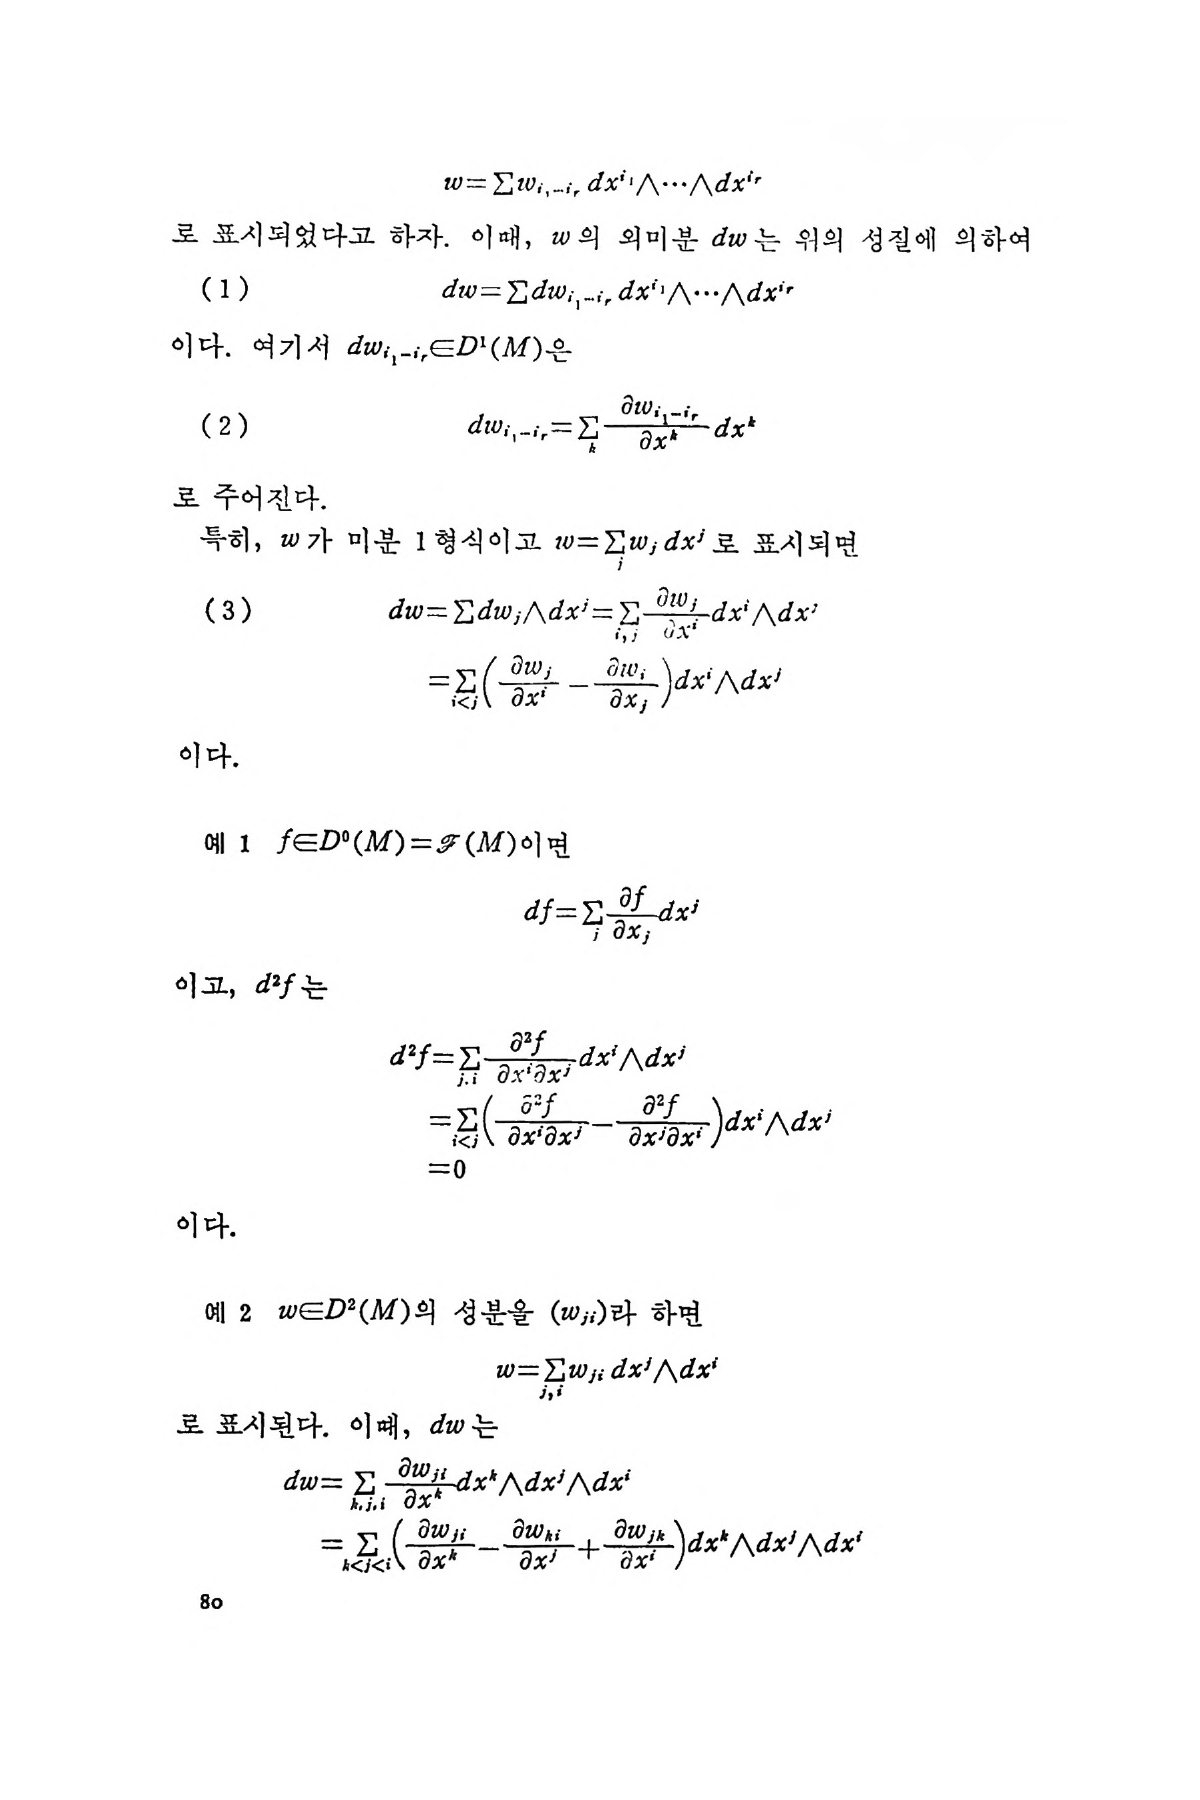 w=∑w_{i₁…i_r} dx^{i₁}∧⋯∧dx^{i_r}
로 표시되었다고 하자. 이때, w의 외미분 dw는 위의 성질에 의하여
(1) dw=∑dw_{i₁…i_r} dx^{i₁}∧⋯∧dx^{i_r}
이다. 여기서 dw_{i₁…i_r}∈D¹(M)은
(2) dw_{i₁…i_r}=∑_k ∂w_{i₁…i_r}/∂x^k dx^k
로 주어진다.
특히, w가 미분 1형식이고 w=∑_j w_j dx^j로 표시되면
(3) dw=∑dw_j∧dx^j=∑_{i,j} ∂w_j/∂x^i dx^i∧dx^j
=∑_{i<j}(∂w_j/∂x^i − ∂w_i/∂x_j)dx^i∧dx^j
이다.
예 1 f∈D⁰(M)=ℱ(M)이면
df=∑_j ∂f/∂x_j dx^j
이고, d²f는
d²f=∑_{j,i} ∂²f/∂x^i∂x^j dx^i∧dx^j
=∑_{i<j}(∂²f/∂x^i∂x^j − ∂²f/∂x^j∂x^i)dx^i∧dx^j
=0
이다.
예 2 w∈D²(M)의 성분을 (w_{ji})라 하면
w=∑_{j,i} w_{ji} dx^j∧dx^i
로 표시된다. 이때, dw는
dw=∑_{k,j,i} ∂w_{ji}/∂x^k dx^k∧dx^j∧dx^i
=∑_{k<j<i}(∂w_{ji}/∂x^k − ∂w_{ki}/∂x^j + ∂w_{jk}/∂x^i)dx^k∧dx^j∧dx^i
80